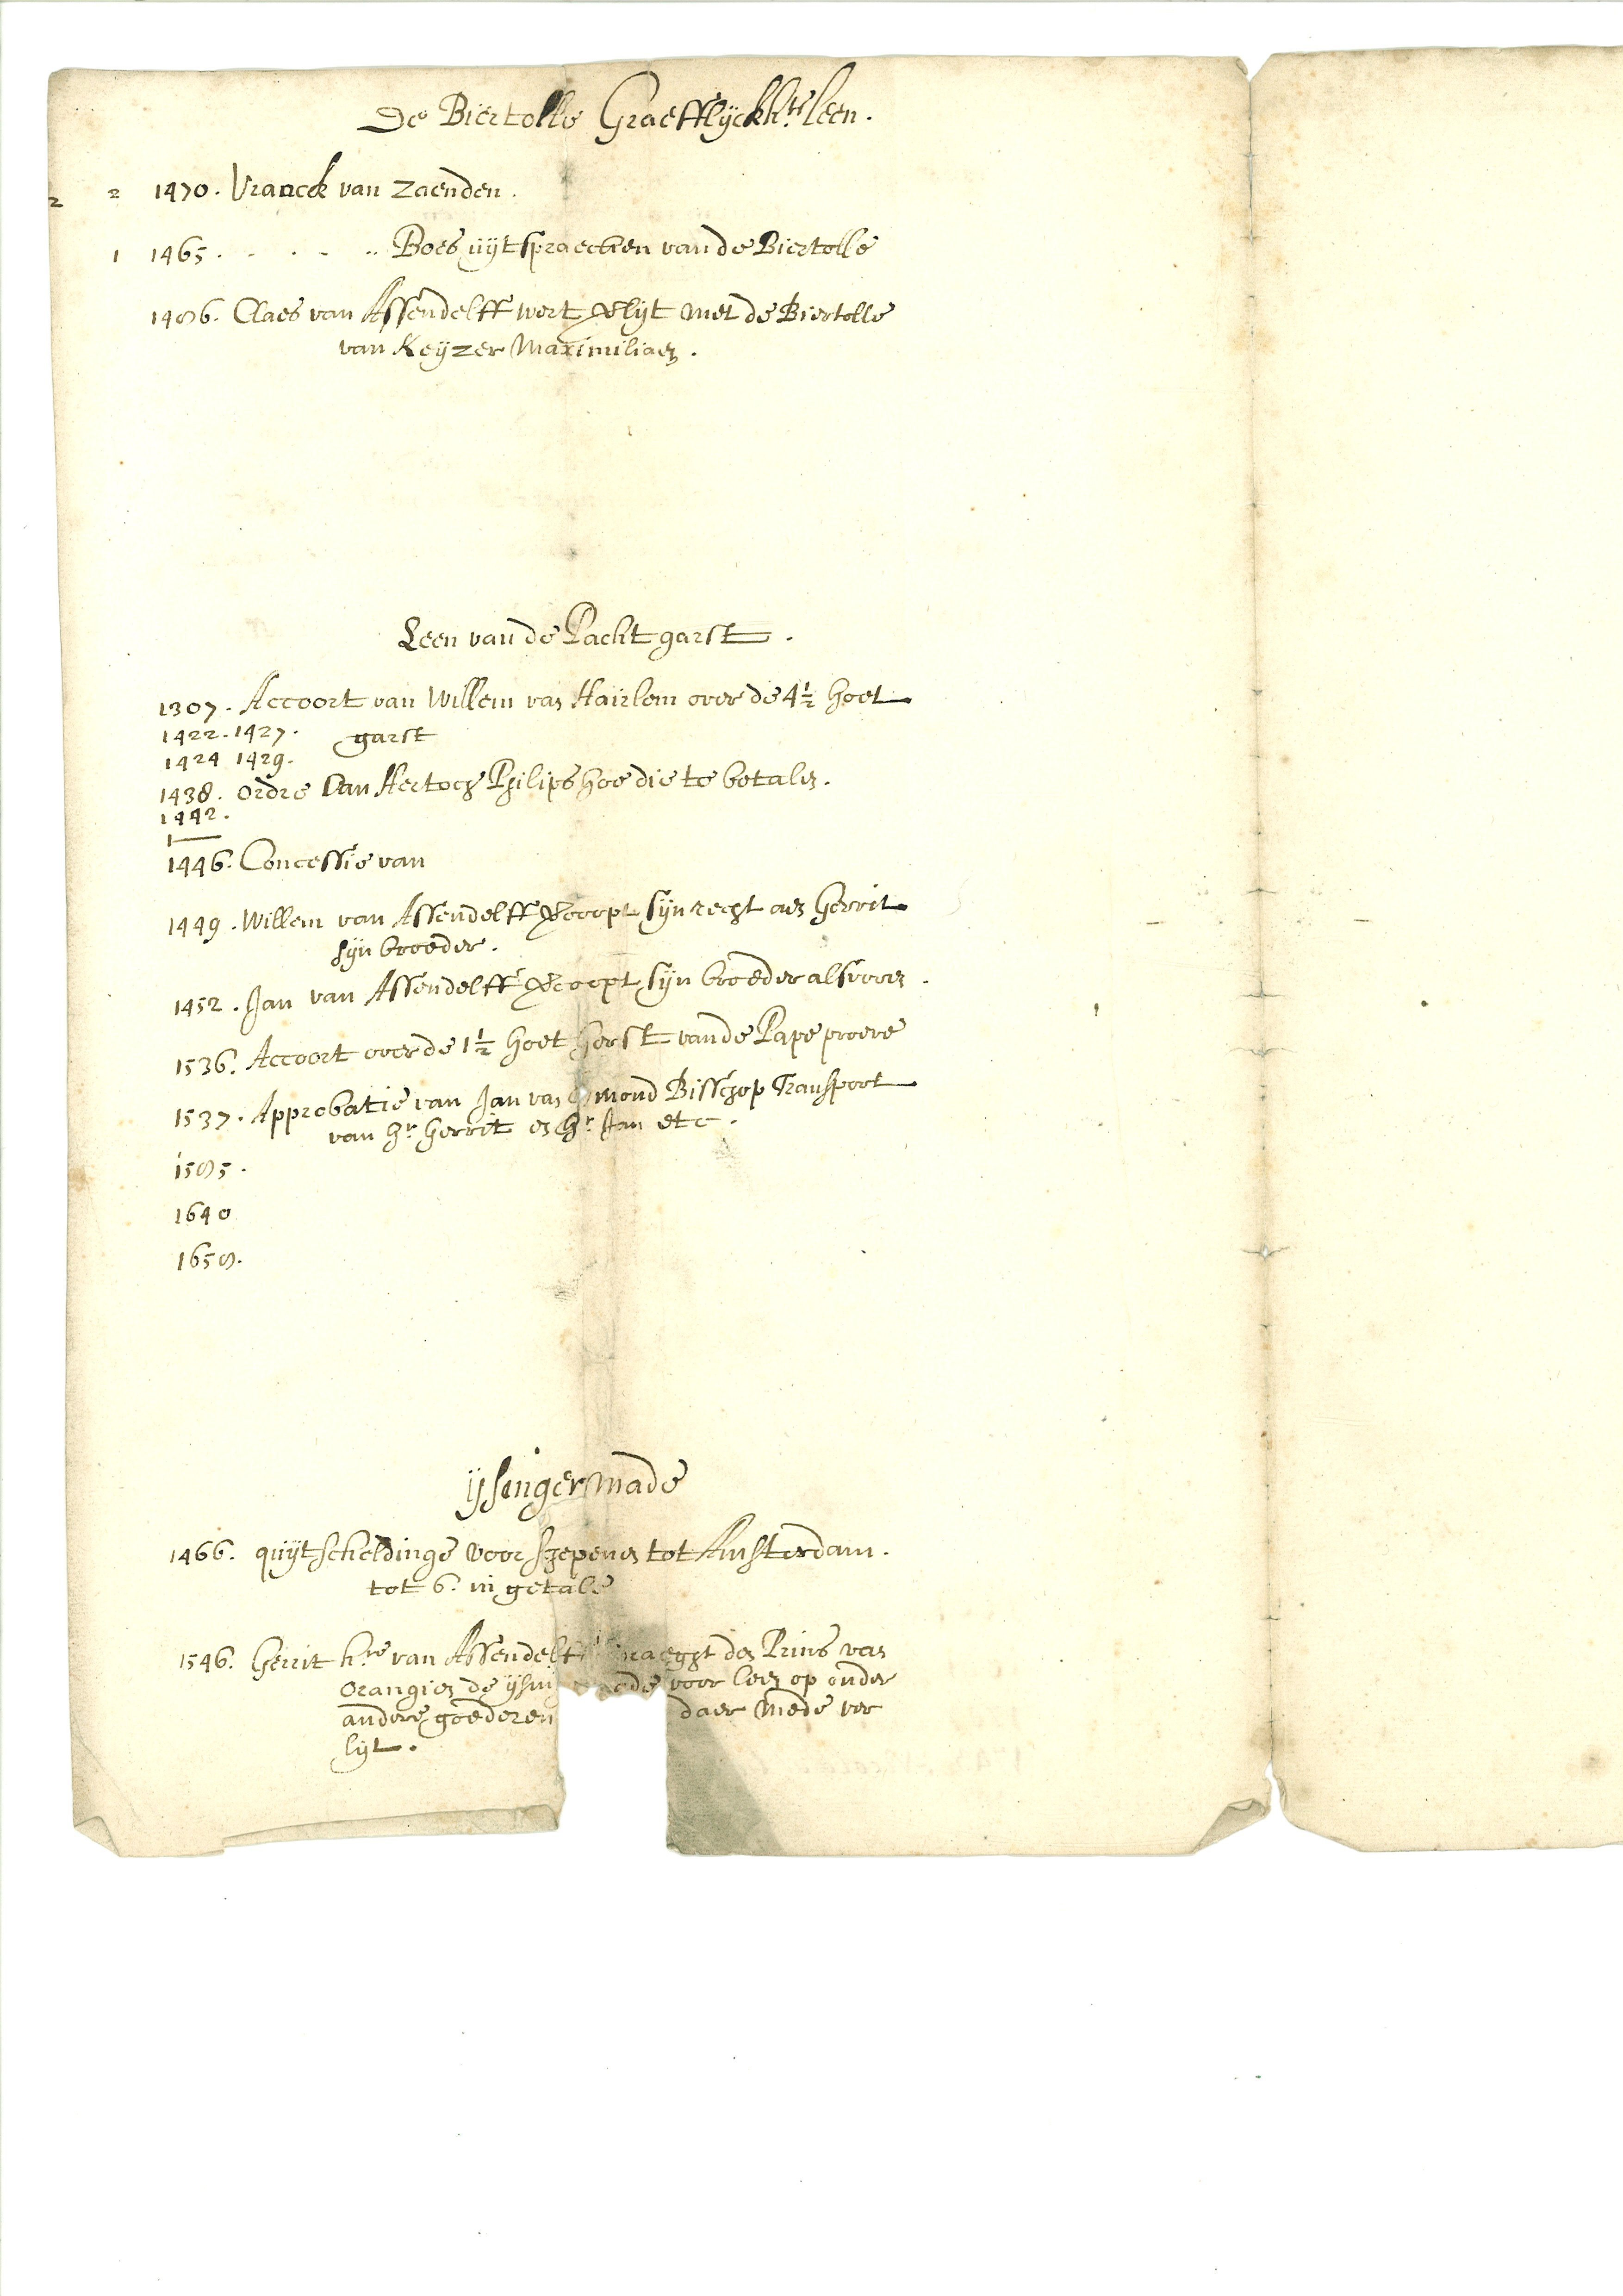 De Biertolle Graefflyckh.ts leen.
2 2 1470. Vranck van Zaenden.
1 1465. . . . .. Boes uijtspraecken van de Biertolle
1486. Claes van Assendelff wert verlijt met de Biertolle
van Keijzer Maximiliaen.
Leen van de Pacht garst.
1307. Accoort van Willem van Hairlem over de 4 1/2 hoet
1422. 1427. garst
1424 1429.
1438. ordre van Hertoch Philips hoe die te betalen.
1442.
1446. Concessie van
1449. Willem van Assendelff vercoopt sijn recht aen Gerrit
sijn broeder.
1452. Jan van Assendelff vercoopt sijn broeder als vooren.
1536. Accoort over de 1 1/2 hoet gerst van de Pape proeve
1537. Approbatie van Jan van mond Bisschop Transport
van hr. Gerrit en hr. Jan etc.
1585.
1640
1658.
ijsingermade
1466. quijtscheldinge voor schepenen tot Amsterdam.
tot 6. in getale
1546. Gerrit h.re van Assendelf den Prins van
Orangien de ijsin ade voor leen op onder
andere goederen daer mede ver
lijt.